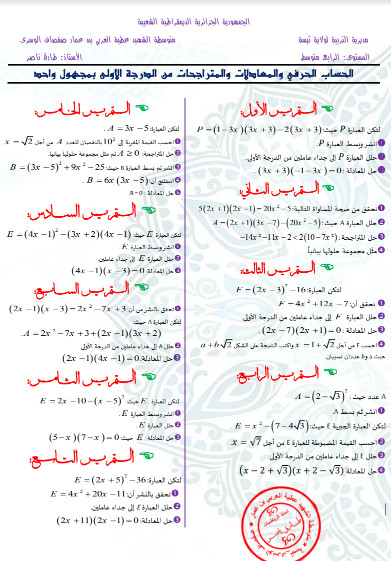 الجمهورية الجزائرية الديمقراطية الشعبية
مديرية التربية لولاية تبسة
متوسطة الشهيد عطية العربي بن عمار صفصاف الوسرى
المستوى: الرابع متوسط
الأستاذ: طارة ناصر
الحساب الحرفي والمعادلات والمتراجحات من الدرجة الأولى بمجهول واحد
التمرين الأول:
لتكن العبارة P حيث: P=(1-3x)(3x+3)-2(3x+3)
❶ انشر وبسط العبارة P
❷ حلل العبارة P إلى جداء عاملين من الدرجة الأولى.
❸ حل المعادلة: (3x+3)(-1-3x)=0
التمرين الثاني:
❶ تحقق من صحة المساواة التالية: 5(2x+1)(2x-1)=20x²-5
❷ حلل العبارة A حيث: A=(2x+1)(3x-7)-(20x²-5)
❸ حل المتراجحة: -14x²-11x-2<2(10-7x²)
❹ مثل مجموعة حلولها بيانيا
التمرين الثالث:
لتكن العبارة: F=(2x-3)²-16
❶ تحقق أن: F=4x²-12x-7
❷ حلل العبارة F إلى جداء عاملين من الدرجة الأولى.
❸ حل المعادلة: (2x-7)(2x+1)=0
❹ احسب F من أجل x=1+√2 واكتب النتيجة على الشكل a+b√2
حيث a و b عددان نسبيان
التمرين الرابع:
A عدد حيث: A=(2-√3)²
❶ انشر ثم بسط A
لتكن العبارة الجبرية E حيث: E=x²-(7-4√3)
❷ احسب القيمة المضبوطة للعبارة E من أجل x=√7
❸ حلل E إلى جداء عاملين من الدرجة الأولى.
❹ حل المعادلة (x-2+√3)(x+2-√3)
التمرين الخامس:
لتكن العبارة: A=3x-5
❶ احسب القيمة المقربة إلى 10⁻² بالنقصان للعدد A من أجل x=√2
❷ حل المتراجحة: A≥0 ثم مثل مجموعة حلولها بيانيا.
❸ انشر ثم بسط العبارة B حيث: B=(3x-5)²+9x²-25
❹ استنتج أن: B=6x(3x-5)
❺ حل المعادلة: B=0
التمرين السادس:
لتكن العبارة E حيث: E=(4x-1)²-(3x+2)(4x-1)
❶ انشر وبسط العبارة E
❷ حلل العبارة E إلى جداء عاملين.
❸ حل المعادلة: (4x-1)(x-3)=0
التمرين السابع:
❶ تحقق بالنشر من أن: (2x-1)(x-3)=2x²-7x+3
لتكن العبارة A حيث:
A=2x²-7x+3+(2x-1)(3x+2)
❷ حلل A إلى جداء عاملين من الدرجة الأولى
❸ حل المعادلة: (2x-1)(4x-1)=0
التمرين الثامن:
لتكن العبارة E حيث: E=2x-10-(x-5)²
❶ انشر وبسط العبارة E.
❷ حلل العبارة E
❸ حل المعادلة E حيث: (5-x)(7-x)=0
التمرين التاسع:
لتكن العبارة: E=(2x+5)²-36
❶ تحقق بالنشر أن: E=4x²+20x-11
❷ حلل العبارة E إلى جداء عاملين من الدرجة الأولى
❸ حل المعادلة: (2x+11)(2x-1)=0